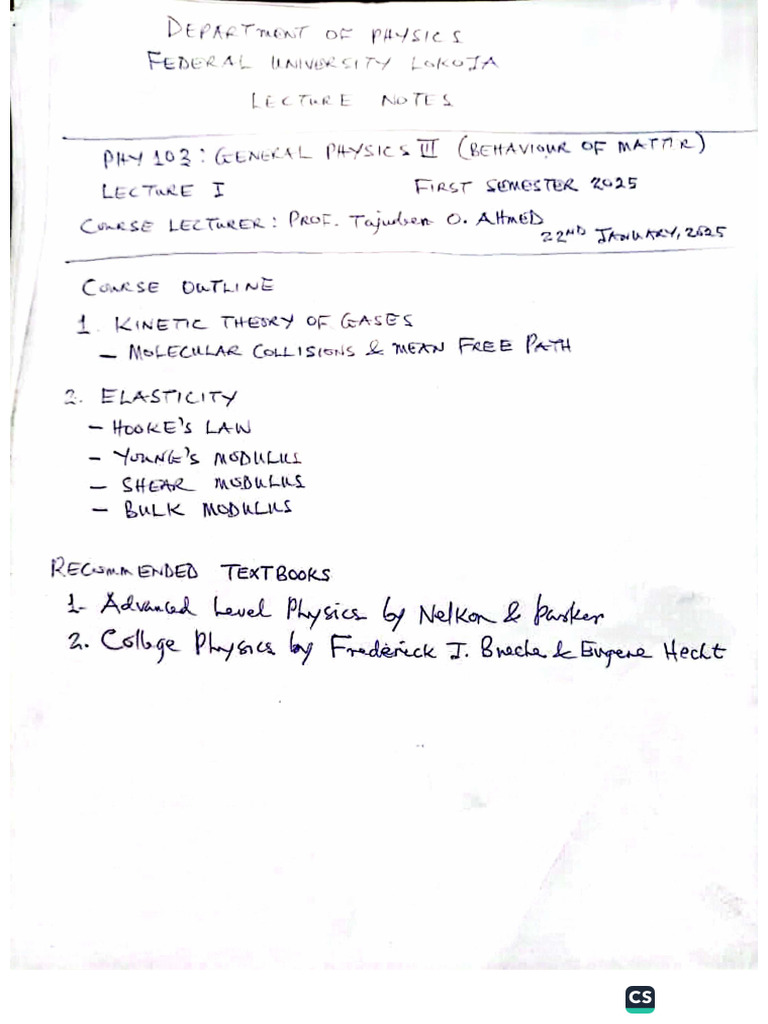 DEPARTMENT OF PHYSICS
FEDERAL UNIVERSITY LOKOJA
LECTURE NOTES
PHY 103: GENERAL PHYSICS III (BEHAVIOUR OF MATTER)
LECTURE I FIRST SEMESTER 2025
COURSE LECTURER: PROF. Tajudeen O. AHMED
22ND JANUARY, 2025
COURSE OUTLINE
1. KINETIC THEORY OF GASES
– MOLECULAR COLLISIONS & MEAN FREE PATH
2. ELASTICITY
– HOOKE'S LAW
– YOUNG'S MODULUS
– SHEAR MODULUS
– BULK MODULUS
RECOMMENDED TEXTBOOKS
1- Advanced Level Physics by Nelkon & Parker
2. College Physics by Frederick J. Bueche & Eugene Hecht
CS